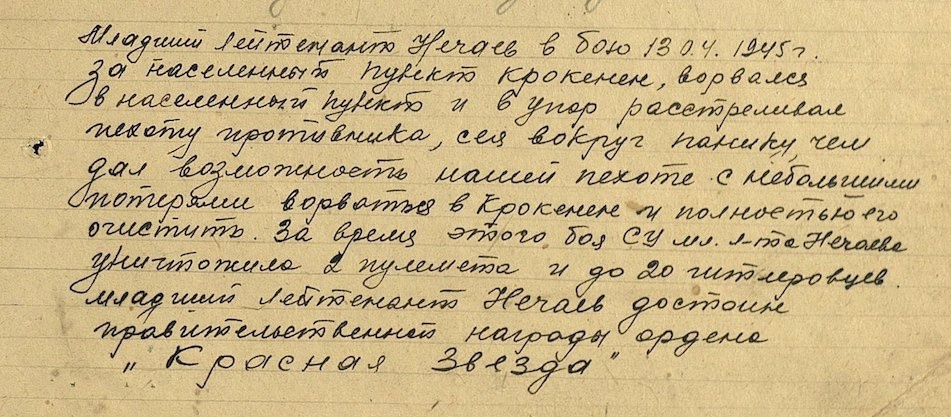 Младший лейтенант Нечаев в бою 13 04. 1945г.
за населенный пункт Крокенен, ворвался
в населенный пункт и в упор расстреливал
пехоту противника, сея вокруг панику, чем
дал возможность нашей пехоте с небольшими
потерями ворваться в Крокенен и полностью его
очистить. За время этого боя СУ мл. л-та Нечаева
уничтожила 2 пулемета и до 20 гитлеровцев.
младший лейтенант Нечаев достоин
правительственной награды ордена
„Красная Звезда"